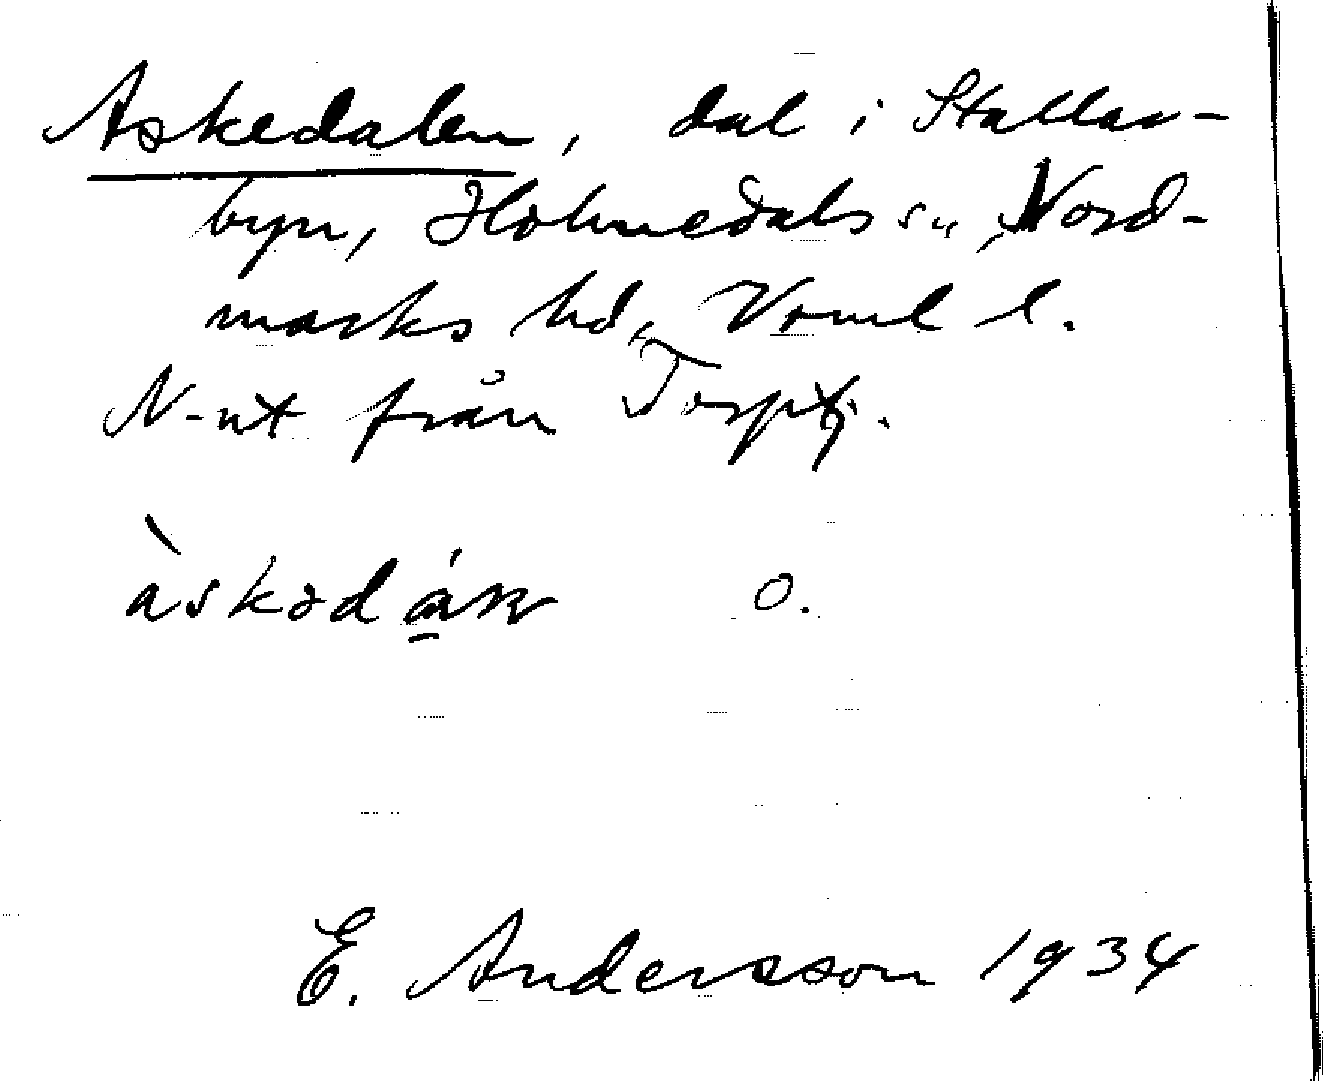 Askedalen, dal i Stallar-
byn, Holmedals sn, Nord-
marks hd, Värml l.
N-ut från Torptj.
O.
E. Andersson 1934